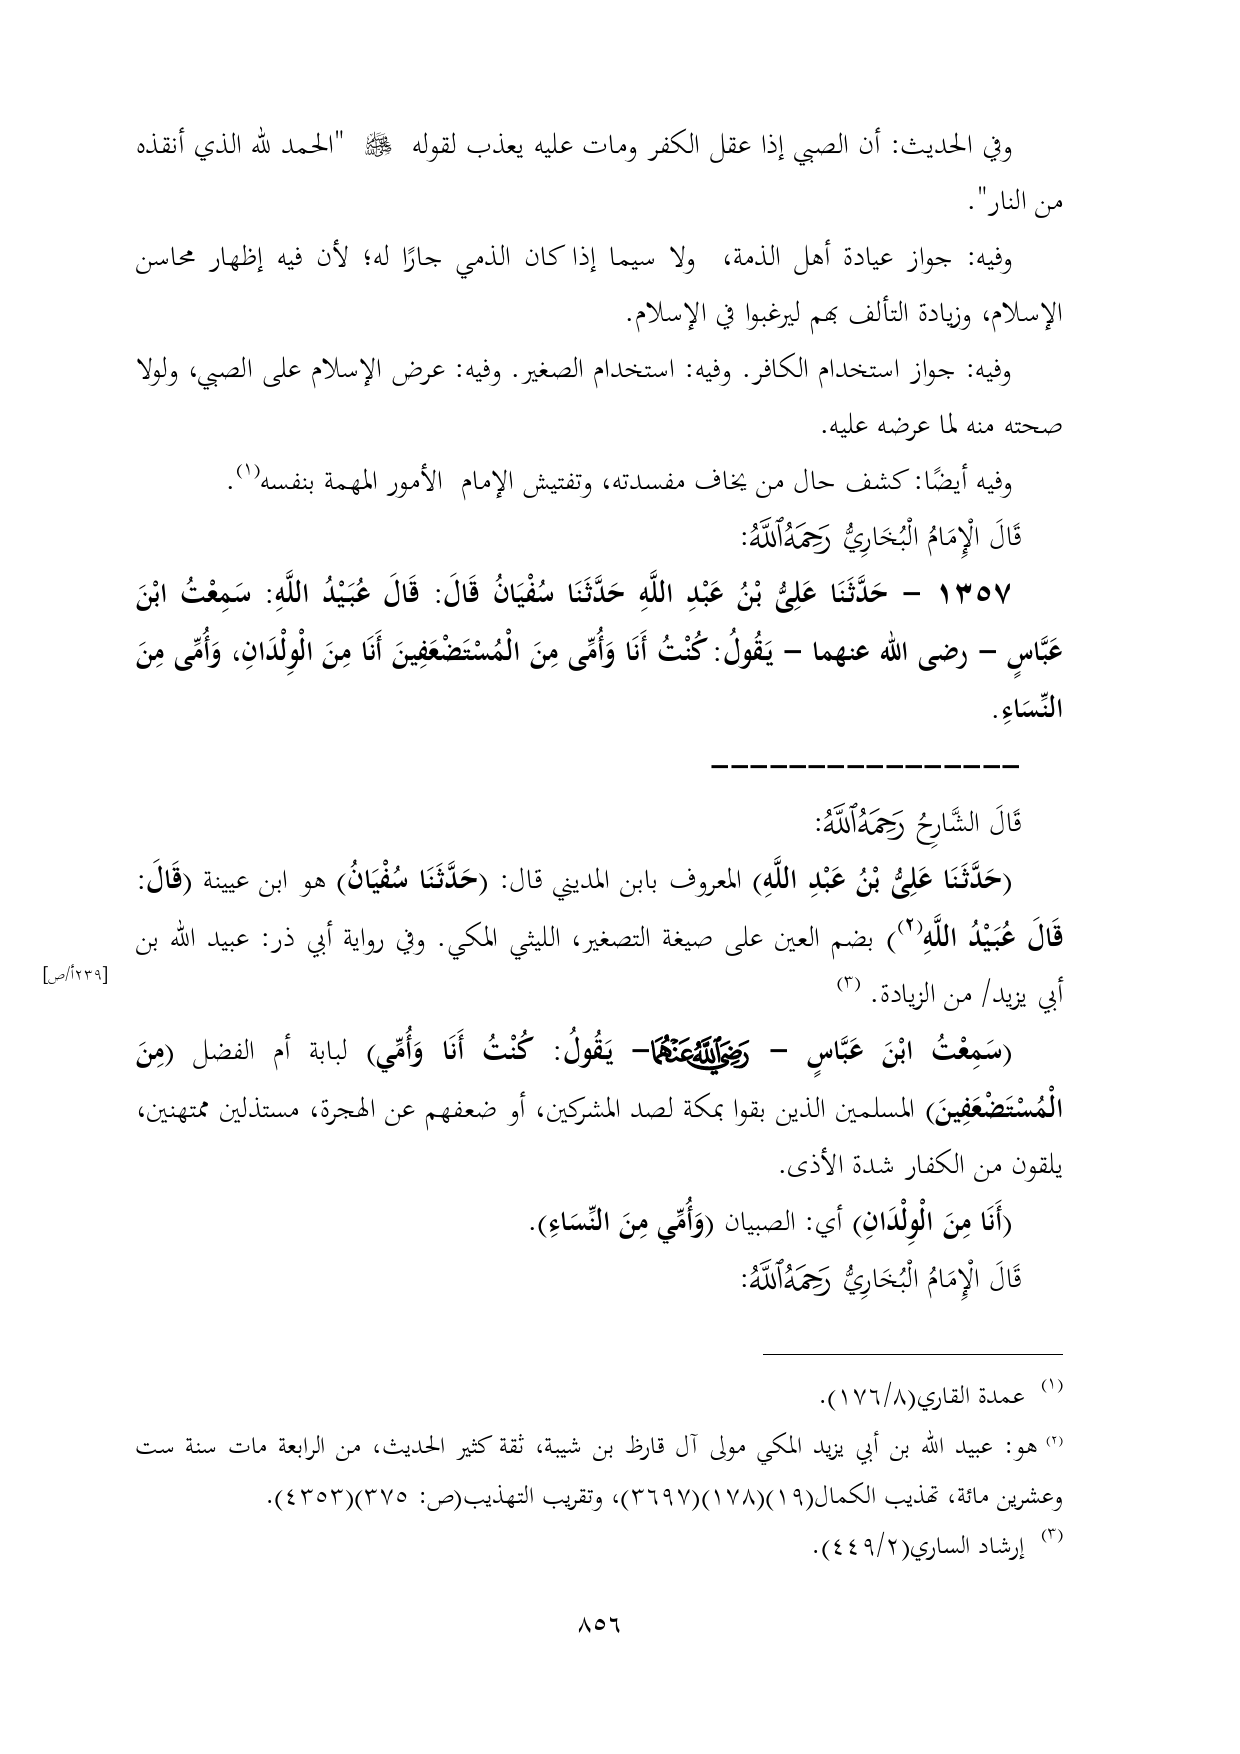 وفي الحديث: أن الصبي إذا عقل الكفر ومات عليه يعذب لقوله ﷺ "الحمد لله الذي أنقذه
من النار".
وفيه: جواز عيادة أهل الذمة، ولا سيما إذا كان الذمي جارًا له؛ لأن فيه إظهار محاسن
الإسلام، وزيادة التألف بهم ليرغبوا في الإسلام.
وفيه: جواز استخدام الكافر. وفيه: استخدام الصغير. وفيه: عرض الإسلام على الصبي، ولولا
صحته منه لما عرضه عليه.
وفيه أيضًا: كشف حال من يخاف مفسدته، وتفتيش الإمام الأمور المهمة بنفسه(١).
قَالَ الْإِمَامُ الْبُخَارِيُّ رَحِمَهُ ٱللَّهُ:
١٣٥٧ – حَدَّثَنَا عَلِىُّ بْنُ عَبْدِ اللَّهِ حَدَّثَنَا سُفْيَانُ قَالَ: قَالَ عُبَيْدُ اللَّهِ: سَمِعْتُ ابْنَ
عَبَّاسٍ – رضى الله عنهما – يَقُولُ: كُنْتُ أَنَا وَأُمِّى مِنَ الْمُسْتَضْعَفِينَ أَنَا مِنَ الْوِلْدَانِ، وَأُمِّى مِنَ
النِّسَاءِ.
––––––––––––––––
قَالَ الشَّارِحُ رَحِمَهُ ٱللَّهُ:
(حَدَّثَنَا عَلِىُّ بْنُ عَبْدِ اللَّهِ) المعروف بابن المديني قال: (حَدَّثَنَا سُفْيَانُ) هو ابن عيينة (قَالَ:
قَالَ عُبَيْدُ اللَّهِ(٢)) بضم العين على صيغة التصغير، الليثي المكي. وفي رواية أبي ذر: عبيد الله بن
[٢٣٩أ/ص]
أبي يزيد/ من الزيادة. (٣)
(سَمِعْتُ ابْنَ عَبَّاسٍ – رَضِيَ ٱللَّهُ عَنْهُمَا– يَقُولُ: كُنْتُ أَنَا وَأُمِّي) لبابة أم الفضل (مِنَ
الْمُسْتَضْعَفِينَ) المسلمين الذين بقوا بمكة لصد المشركين، أو ضعفهم عن الهجرة، مستذلين ممتهنين،
يلقون من الكفار شدة الأذى.
(أَنَا مِنَ الْوِلْدَانِ) أي: الصبيان (وَأُمِّي مِنَ النِّسَاءِ).
قَالَ الْإِمَامُ الْبُخَارِيُّ رَحِمَهُ ٱللَّهُ:
(١) عمدة القاري(١٧٦/٨).
(٢) هو: عبيد الله بن أبي يزيد المكي مولى آل قارظ بن شيبة، ثقة كثير الحديث، من الرابعة مات سنة ست
وعشرين مائة، تهذيب الكمال(١٩)(١٧٨)(٣٦٩٧)، وتقريب التهذيب(ص: ٣٧٥)(٤٣٥٣).
(٣) إرشاد الساري(٤٤٩/٢).
٨٥٦